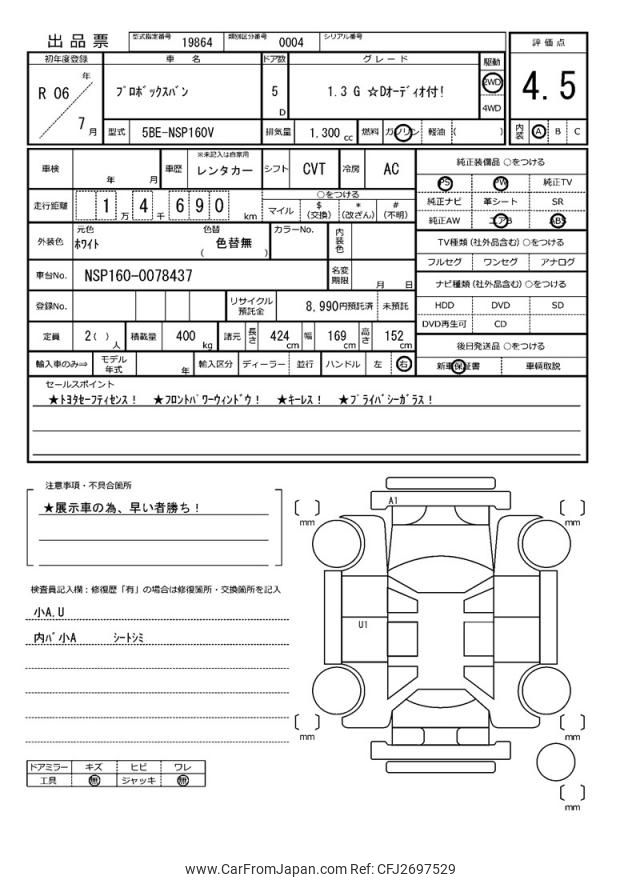 出品票 型式指定番号 19864 類別区分番号 0004 シリアル番号
初年度登録 車名 ドア数 グレード 駆動 評価点
R 06 年 7 月 プロボックスバン 5 D 1.3 G ☆Dオーディオ付! 2WD 4WD 4.5
型式 5BE-NSP160V 排気量 1,300 cc 燃料 ガソリン 軽油 ( ) 内装 A B C
車検 年 月 車歴 ※未記入は自家用 レンタカー シフト CVT 冷房 AC
純正装備品 ○をつける
PS PW 純正TV
純正ナビ 革シート SR
純正AW エアB ABS
走行距離 1 万 4 千 6 9 0 km ○をつける
マイル $(交換) *(改ざん) #(不明)
外装色 元色 ホワイト 色替 色替無 ( ) カラーNo. 内装色
TV種類(社外品含む)○をつける
フルセグ ワンセグ アナログ
車台No. NSP160-0078437 名変期限 月 日
ナビ種類(社外品含む)○をつける
登録No. リサイクル預託金 8,990円預託済 未預託
HDD DVD SD
DVD再生可 CD
定員 2( )人 積載量 400 kg 諸元 長さ 424 cm 幅 169 cm 高さ 152 cm
後日発送品 ○をつける
輸入車のみ⇒ モデル年式 年 輸入区分 ディーラー 並行 ハンドル 左 右
新車保証書 車輌取説
セールスポイント
★トヨタセーフティセンス! ★フロントパワーウィンドウ! ★キーレス! ★プライバシーガラス!
注意事項・不具合箇所
★展示車の為、早い者勝ち!
検査員記入欄:修復歴「有」の場合は修復箇所・交換箇所を記入
小A.U
内バ小A シートシミ
A1
U1
mm
mm
mm
mm
mm
ドアミラー キズ ヒビ ワレ
工具 無 ジャッキ 無
www.CarFromJapan.com Ref: CFJ2697529